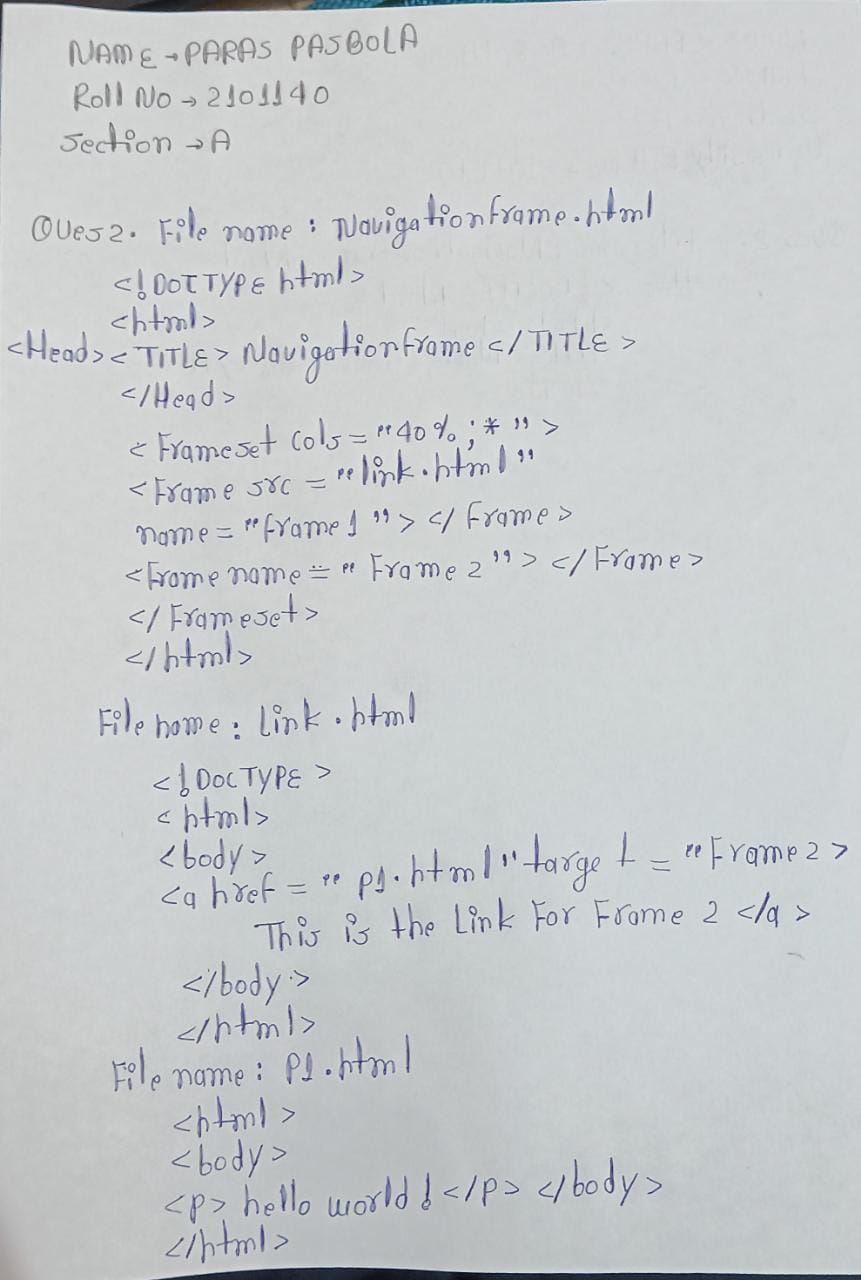 NAME → PARAS PASBOLA
Roll No → 2101140
Section → A
Ques 2. File name : Navigationframe.html
<!DOCTYPE html>
<html>
<Head> <TITLE> Navigationframe </TITLE>
</Head>
<Frameset Cols = "40%;*">
<Frame src = "link.html"
name = "frame1"> </Frame>
<Frame name = "Frame 2"> </Frame>
</Frameset>
</html>
File name : Link.html
<!DOCTYPE>
<html>
<body>
<a href = "P1.html" target = "Frame 2>
This is the Link For Frame 2 </a>
</body>
</html>
File name : P1.html
<html>
<body>
<p> hello world! </p> </body>
</html>